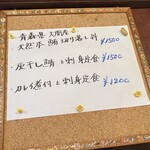 ・青森県 大間産
天然本鮪 切り落し丼 ¥1500
・灰干し鯖と刺身定食 ¥1500
・カレイ煮付と刺身定食 ¥1200